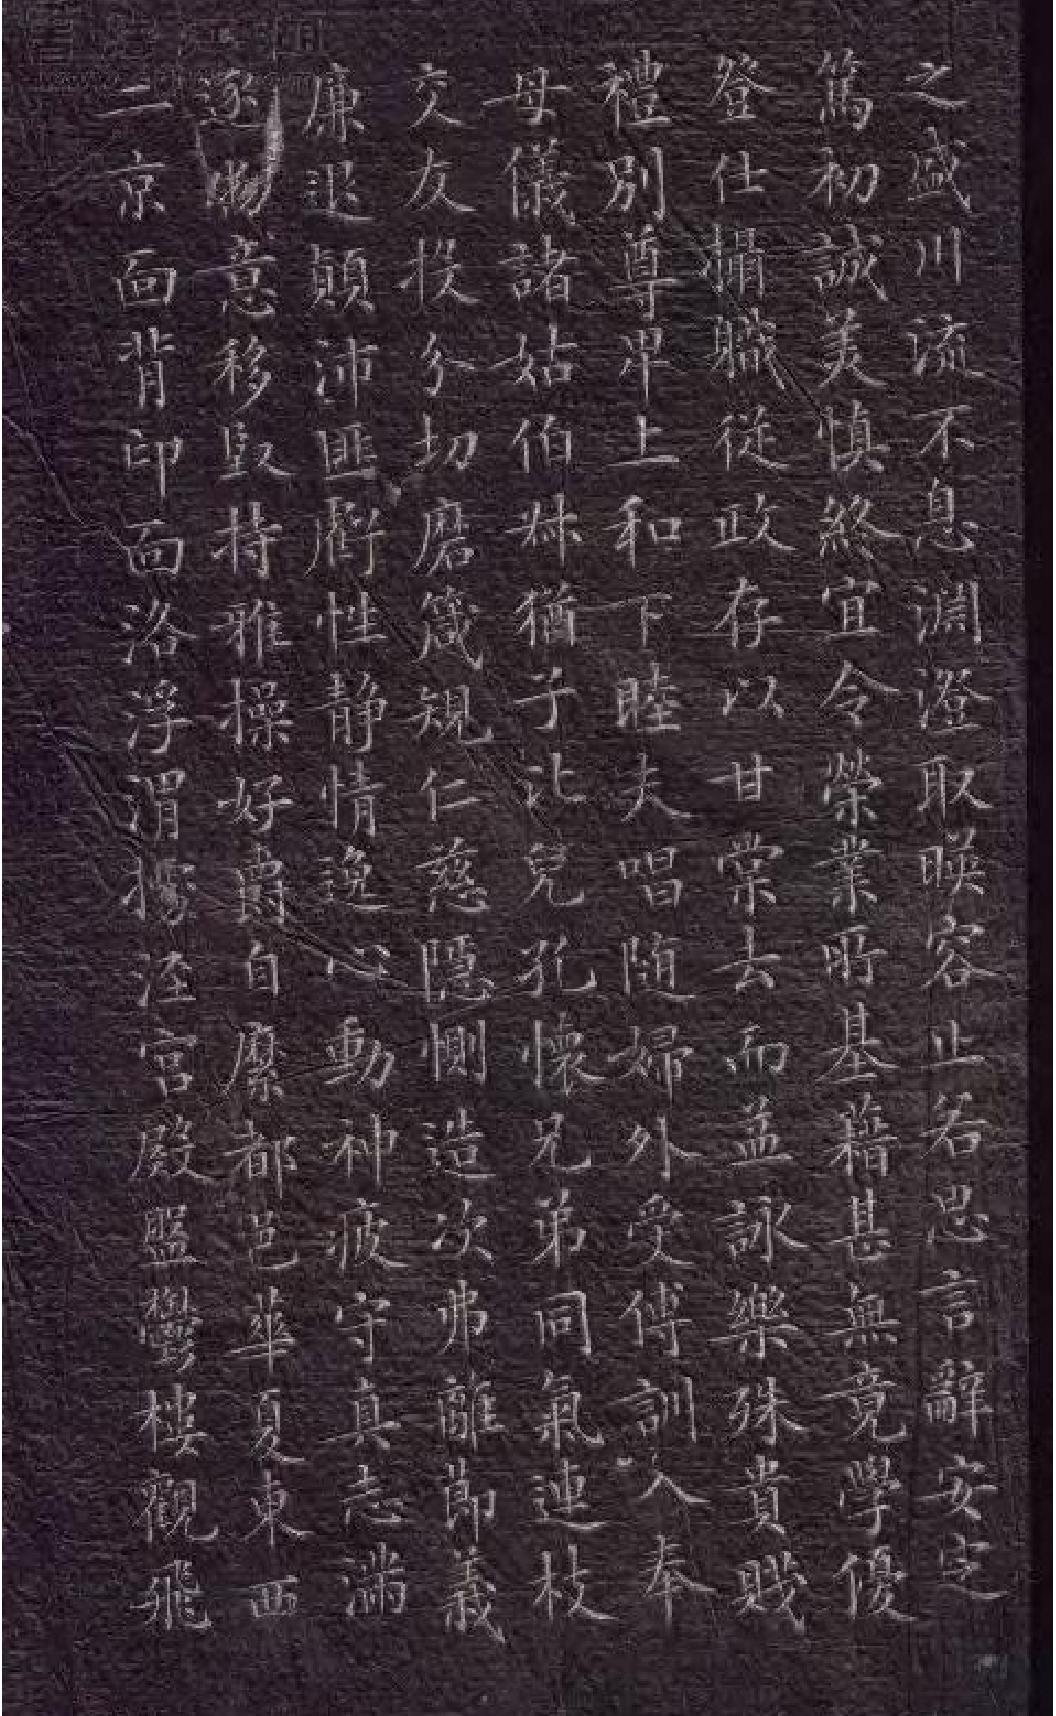 之盛川流不息淵澄取暎容止若思言辭安定
篤初誠美慎終宜令榮業所基藉甚無竟學優
登仕攝職從政存以甘棠去而益詠樂殊貴賤
禮別尊卑上和下睦夫唱随婦外受傅訓入奉
母儀諸姑伯叔猶子比兒孔懷兄弟同氣連枝
交友投分切磨箴規仁慈隱惻造次弗離節義
廉退顛沛匪虧性静情逸心動神疲守真志滿
逐物意移堅持雅操好爵自縻都邑華夏東西
二京面背邙面洛浮渭據涇宮殿盤欝樓觀飛